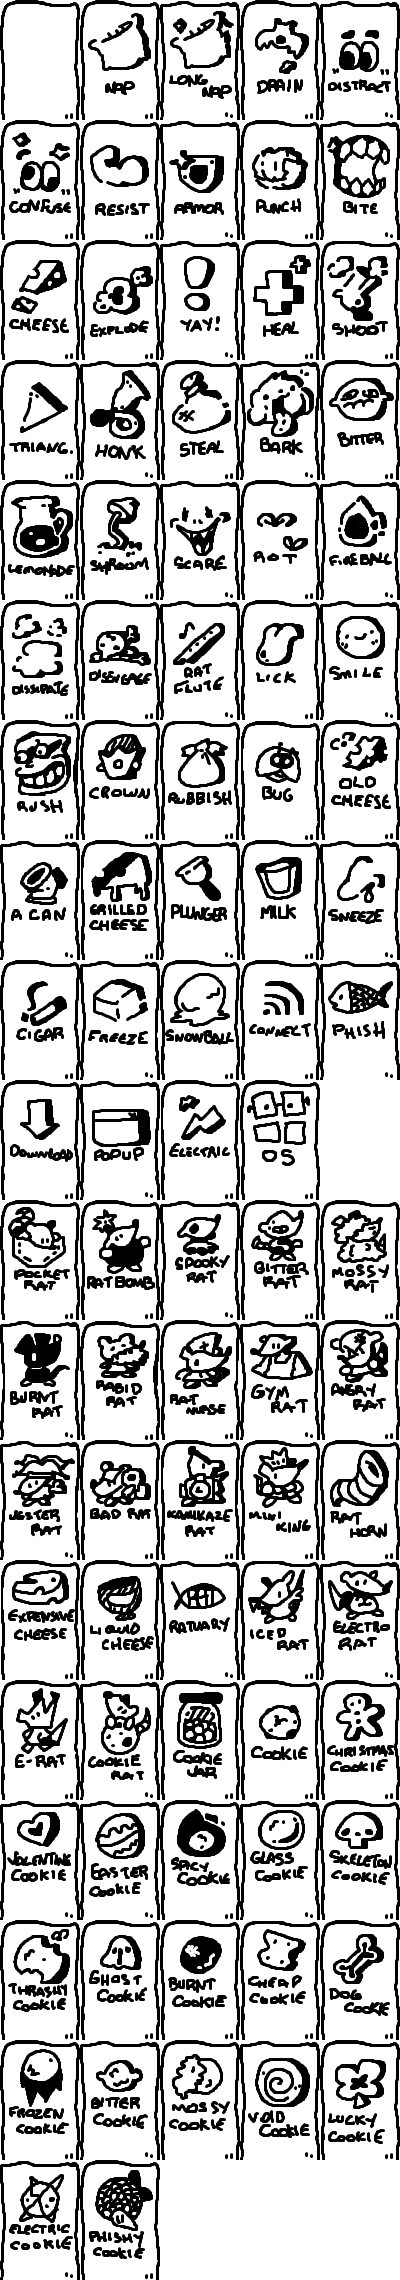 NAP
LONG NAP
DRAIN
DISTRACT
CONFUSE
RESIST
ARMOR
PUNCH
BITE
CHEESE
EXPLODE
YAY!
HEAL
SHOOT
TRIANG.
HONK
STEAL
BARK
BITTER
LEMONADE
SHROOM
SCARE
ROT
FIREBALL
DISSIPATE
DISENGAGE
RAT
FLUTE
LICK
SMILE
RUSH
CROWN
RUBBISH
BUG
OLD
CHEESE
A CAN
GRILLED
CHEESE
PLUNGER
MILK
SNEEZE
CIGAR
FREEZE
SNOWBALL
CONNECT
PHISH
DOWNLOAD
POPUP
ELECTRIC
OS
POCKET
RAT
RAT BOMB
SPOOKY
RAT
BITTER
RAT
MOSSY
RAT
BURNT
RAT
RABID
RAT
RAT
NURSE
GYM
RAT
ANGRY
RAT
JESTER
RAT
BAD RAT
KAMIKAZE
RAT
MINI
KING
RAT
HORN
EXPENSIVE
CHEESE
LIQUID
CHEESE
RATUARY
ICED
RAT
ELECTRO
RAT
E-RAT
COOKIE
RAT
COOKIE
JAR
COOKIE
CHRISTMAS
COOKIE
VALENTINE
COOKIE
EASTER
COOKIE
SPICY
COOKIE
GLASS
COOKIE
SKELETON
COOKIE
THRASHY
COOKIE
GHOST
COOKIE
BURNT
COOKIE
CHEAP
COOKIE
DOG
COOKIE
FROZEN
COOKIE
BITTER
COOKIE
MOSSY
COOKIE
VOID
COOKIE
LUCKY
COOKIE
ELECTRIC
COOKIE
PHISHY
COOKIE